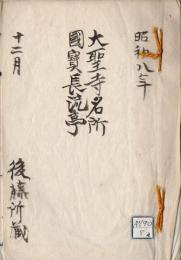 昭和八年
大聖寺名所
國寶長流亭
十二月
後藤所蔵